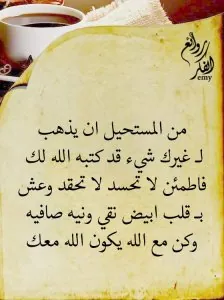 روائع
الفكر
emy
من المستحيل ان يذهب
لـ غيرك شيء قد كتبه الله لك
فاطمئن لا تحسد لا تحقد وعش
بـ قلب ابيض نقي ونيه صافيه
وكن مع الله يكون الله معك